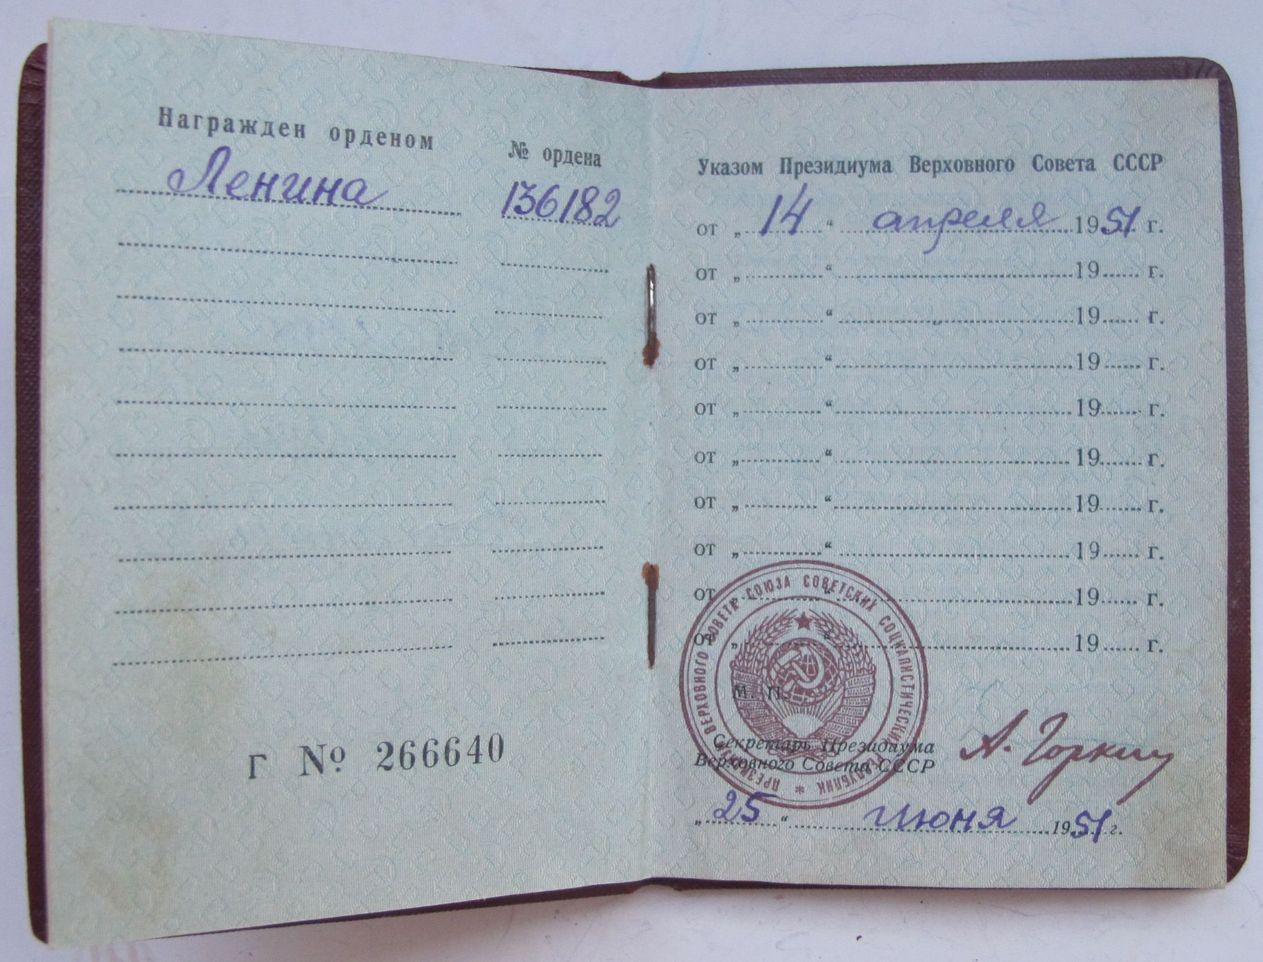 Награжден орденом
№ ордена
Ленина
136182
Г № 266640
Указом Президиума Верховного Совета СССР
от „ 14 “ апреля 1951 г.
от „ “ 19 г.
от „ “ 19 г.
от „ “ 19 г.
от „ “ 19 г.
от „ “ 19 г.
от „ “ 19 г.
от „ “ 19 г.
от „ “ 19 г.
от „ “ 19 г.
ПРЕЗИДИУМ ВЕРХОВНОГО СОВЕТА СОЮЗА СОВЕТСКИХ СОЦИАЛИСТИЧЕСКИХ РЕСПУБЛИК *
М. П.
Секретарь Президиума
Верховного Совета СССР
А. Горкин
„ 25 “ июня 1951 г.